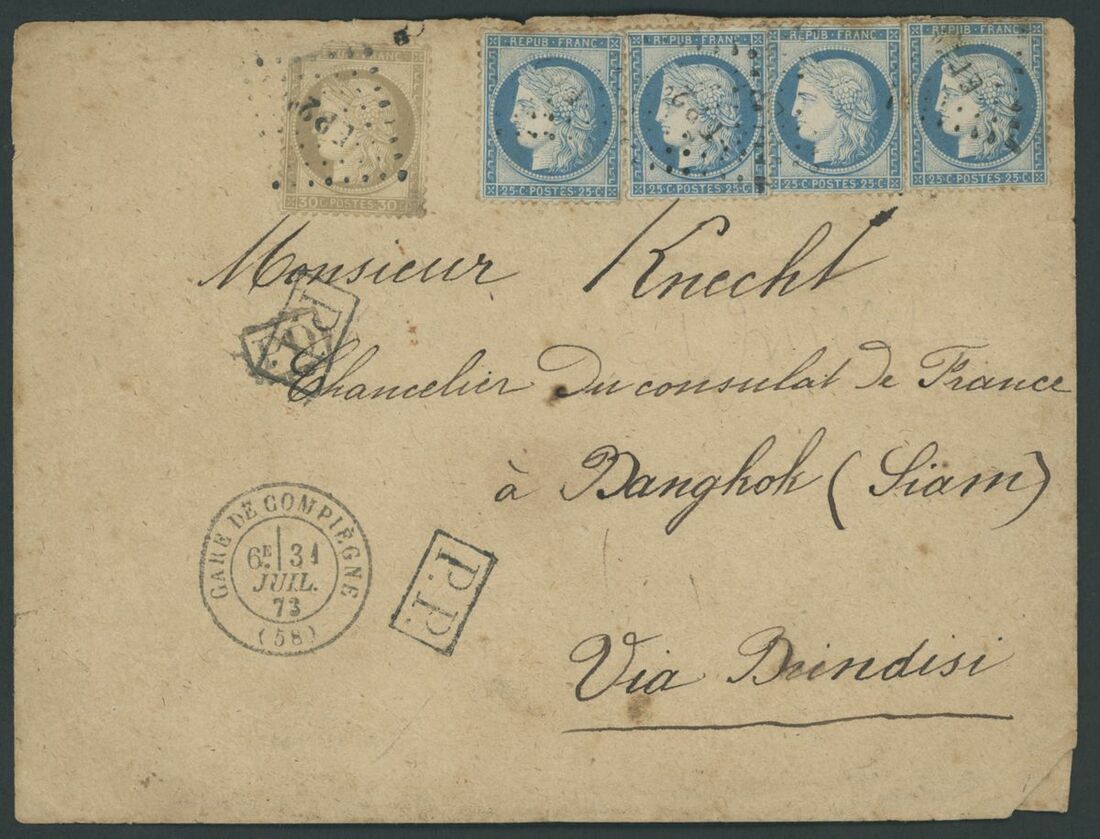 30 C POSTES 30 C
REPUB · FRANC ·
25 · C POSTES 25 · C
REPUB · FRANC ·
25 · C POSTES 25 · C
REPUB · FRANC ·
25 · C POSTES 25 · C
REPUB · FRANC ·
25 · C POSTES 25 · C
Monsieur Knecht
P.P.
Chancelier Du consulat de France
à Bangkok (Siam)
GARE DE COMPIÈGNE
6E 31
JUIL.
73
(58)
P.P.
Via Brindisi